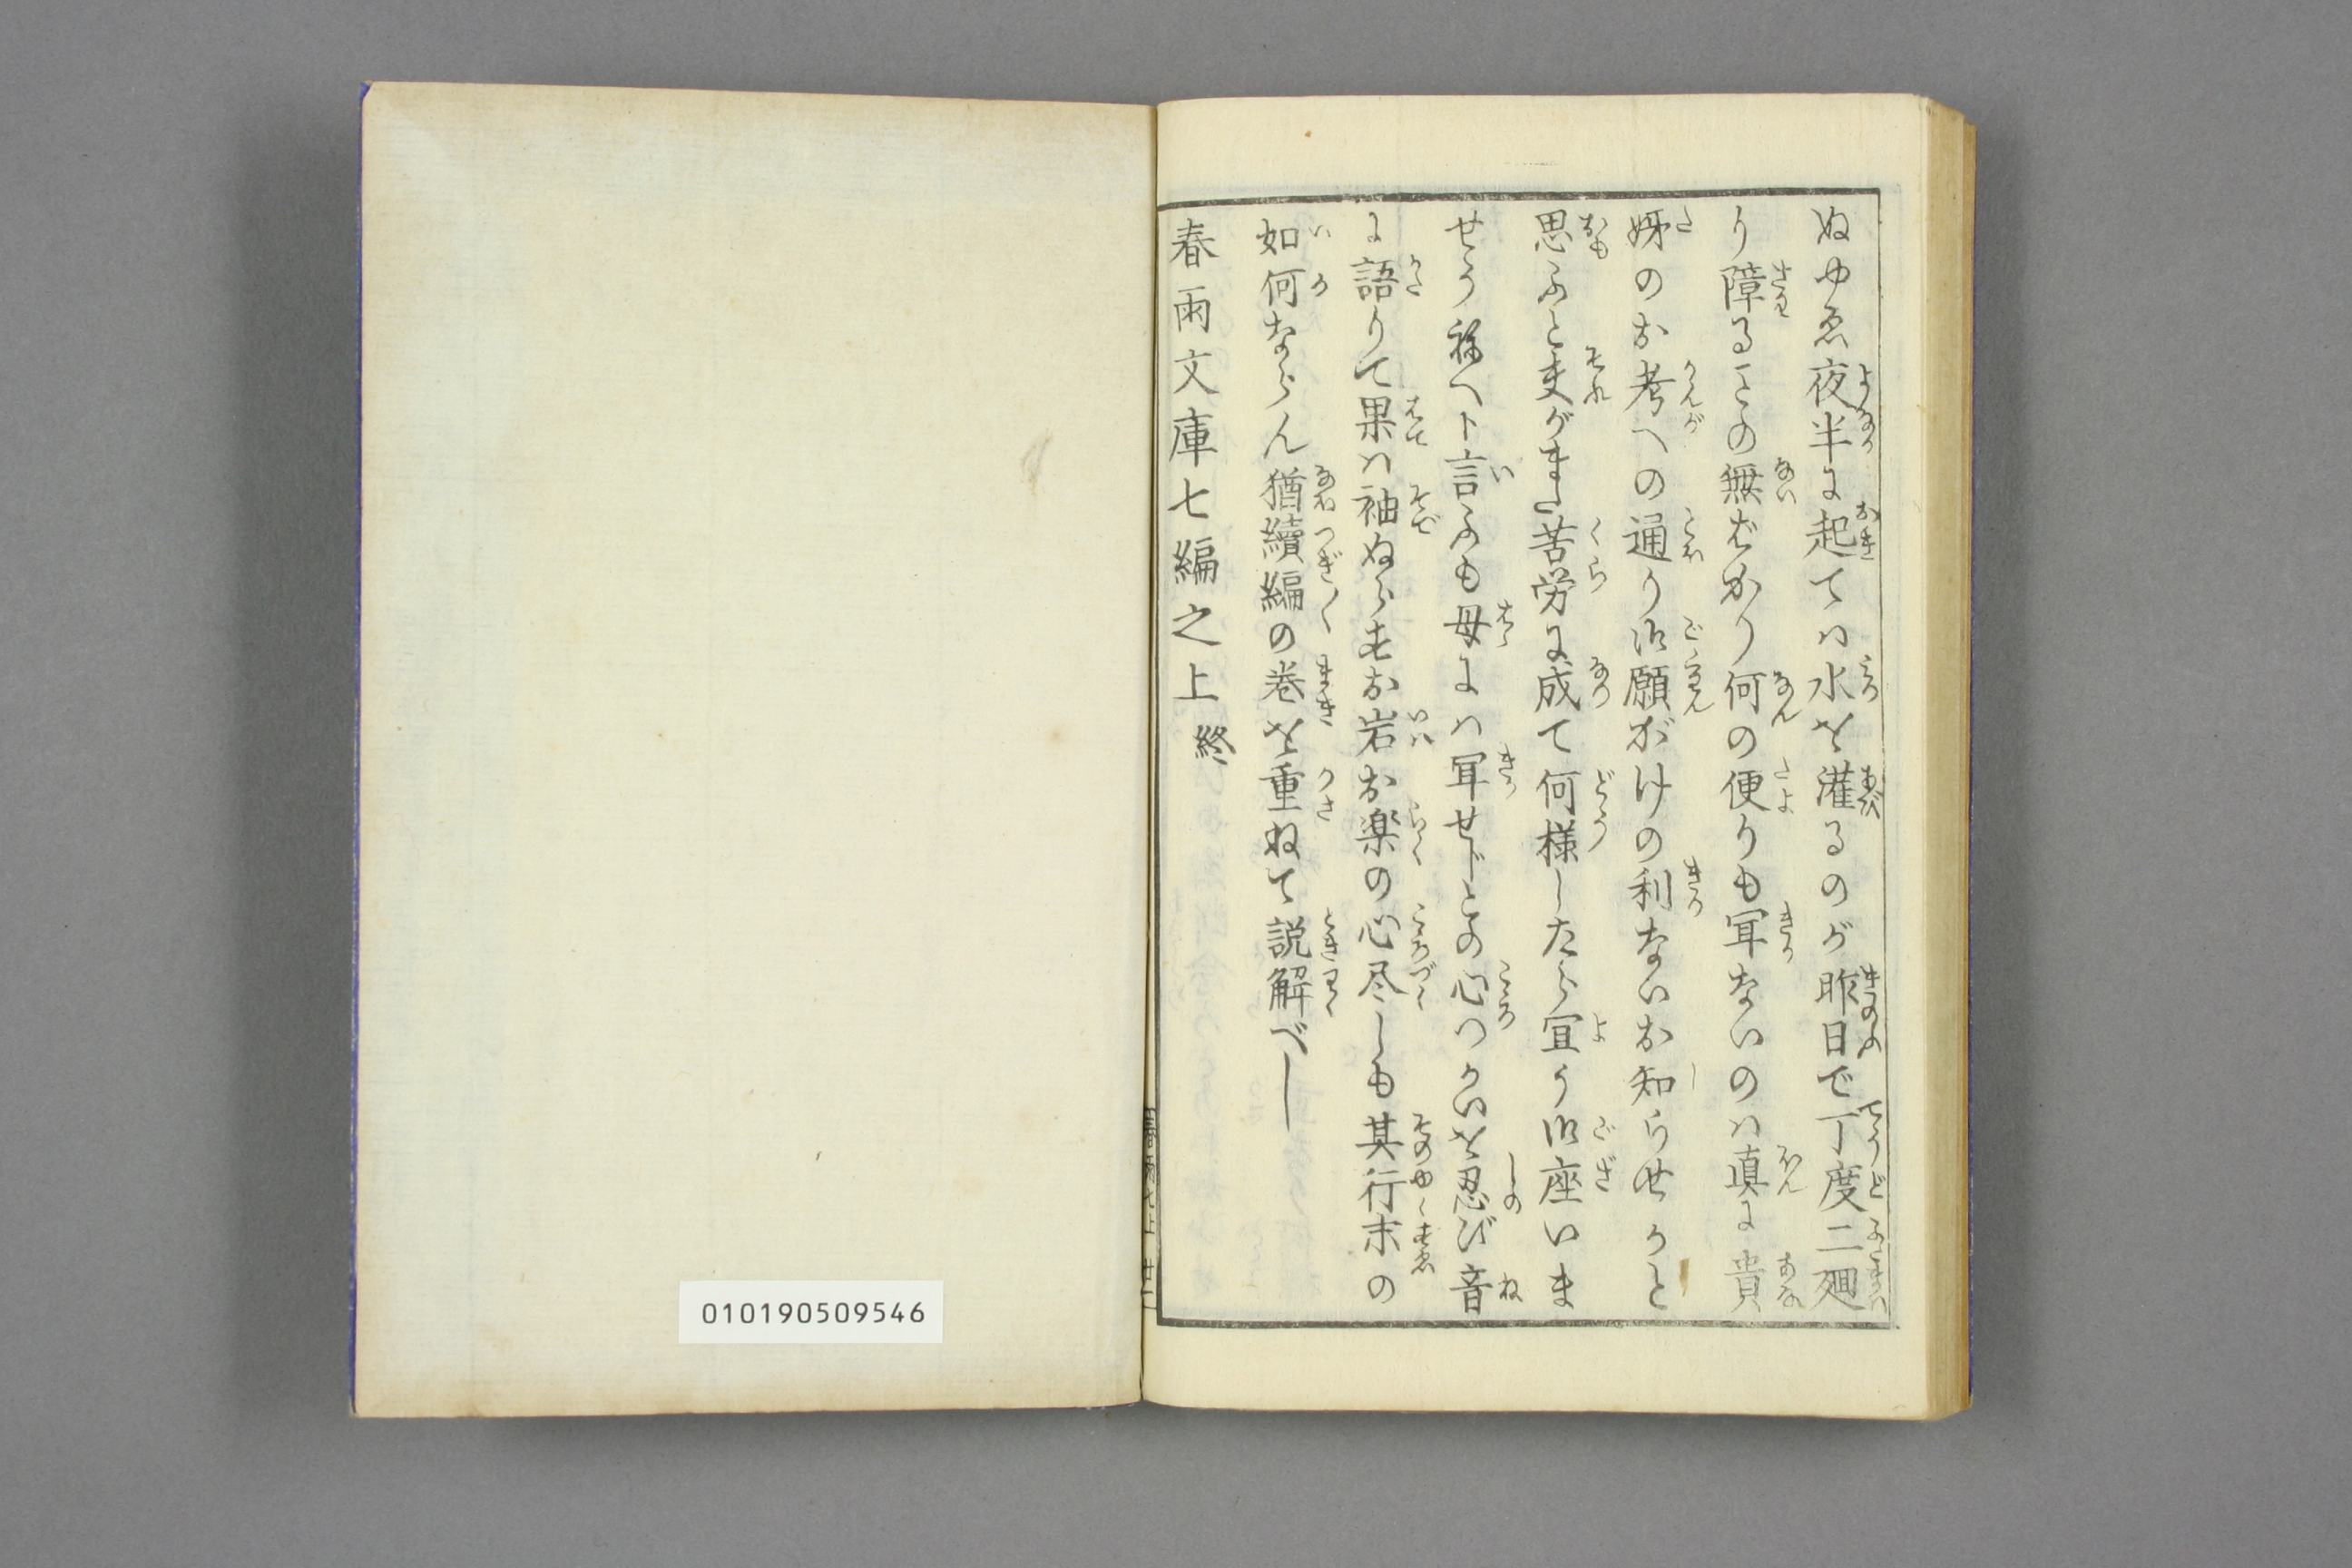 ぬゆゑ夜半に起ては水を灌るのが昨日で丁度二廻
り障ることの無ばかり何の便りも耳ないのは真に貴
姉のお考への通り御願がけの利ないお知らせかと
思ふと夫がまた苦労に成て何様したら宜う御座いま
せうねへト言ふも母には耳せじとの心づかいを忍び音
に語りて果は袖ぬらすお岩お楽の心尽しも其行末の
如何ならん猶續編の巻を重ねて説解べし
春雨文庫七編之上 終
010190509546